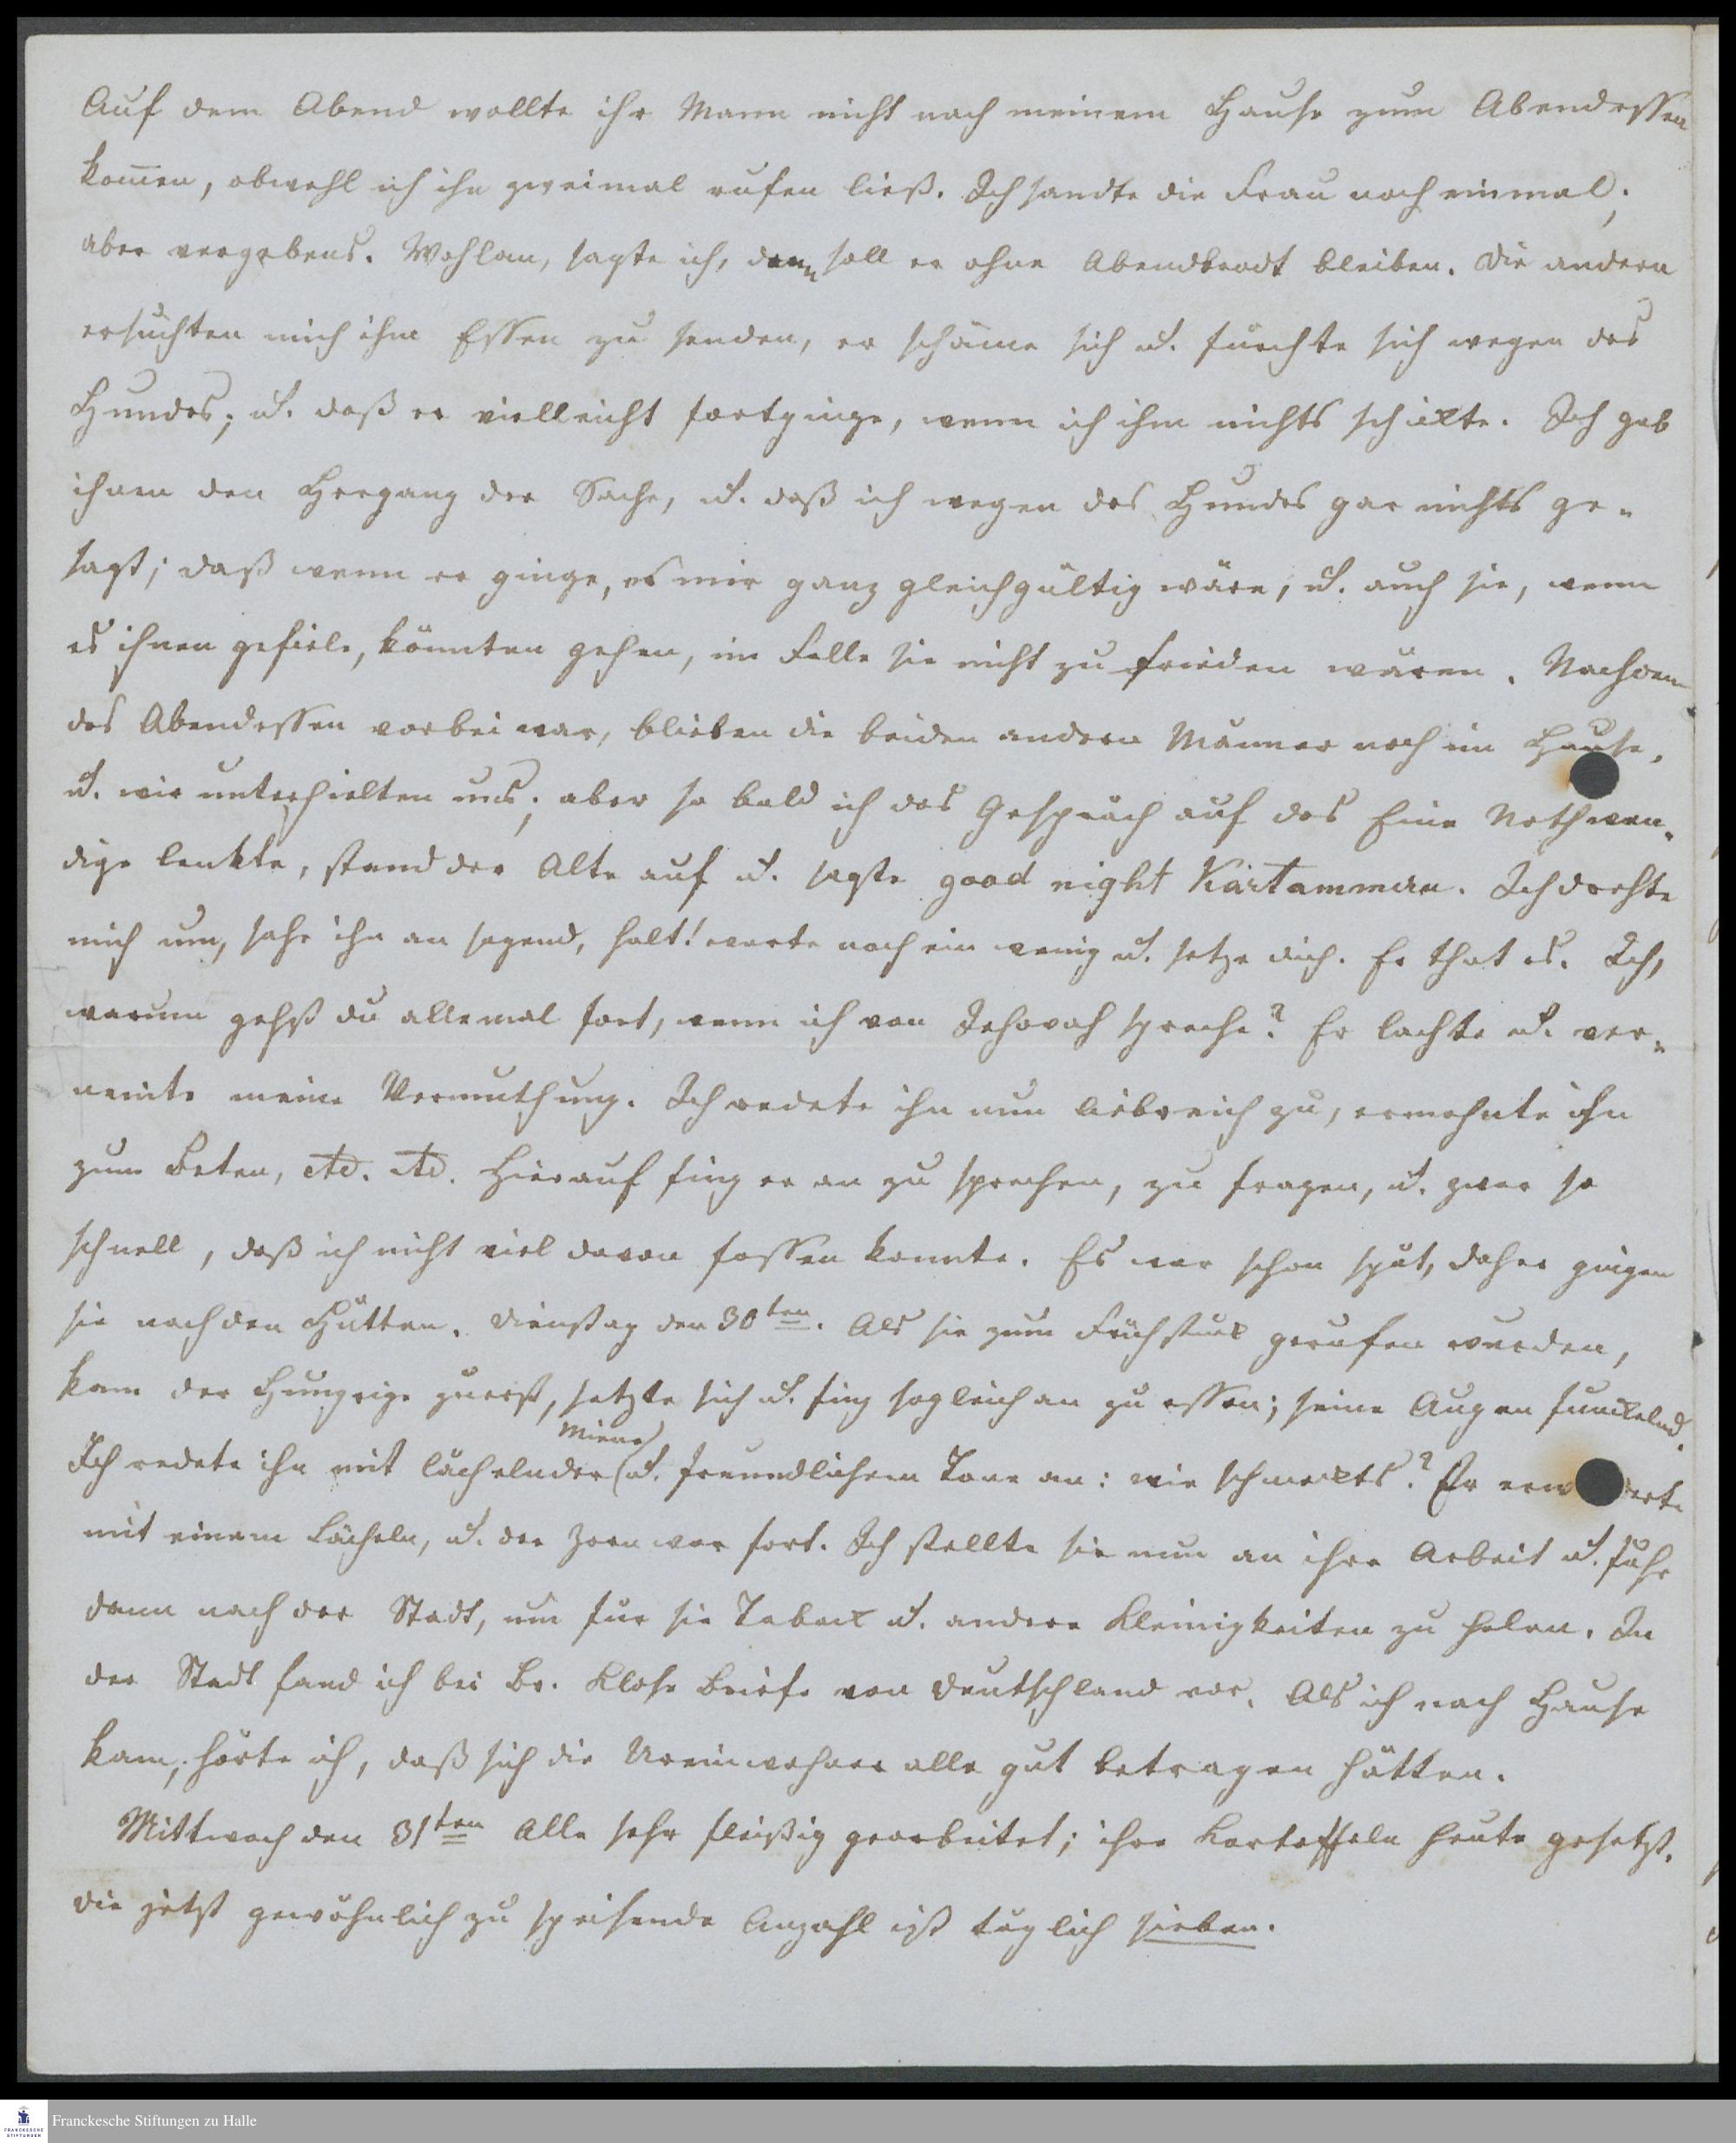 Auf dem Abend wollte ihr Mann nicht nach meinem Hause zum Abendessen
kom̅en, obwohl ich ihn zweimal rufen ließ. Ich sandte die Frau noch einmal;
aber vergebens. Wohlan, sagte ich, dann soll er ohne Abendbrodt bleiben. Die andern
ersuchten mich ihm Essen zu senden, er schäme sich u. fürchte sich wegen des
Hundes; u. daß er vielleicht fortginge, wenn ich ihm nichts schickte. Ich gab
ihnen den Hergang der Sache, u. daß ich wegen des Hundes gar nichts ge-
sagt; daß wenn er ginge, es mir ganz gleichgültig wäre, u. auch sie, wenn
es ihnen gefiele, könnten gehen, im Falle sie nicht zufrieden wären. Nachdem
das Abendessen vorbei war, blieben die beiden andern Männer noch im Hause,
u. wir unterhielten uns; aber so bald ich das Gespräch auf das Eine Nothwen-
dige lenkte, stand der Alte auf u. sagte good night Kartammeru. Ich drehte
mich um, sahe ihn an sagend, halt! warte noch ein wenig u. setze dich. Er that es. Ich,
warum gehst du allemal fort, wenn ich von Jehovah spreche? Er lachte u. ver-
neinte meine Vermuthung. Ich redete ihn nun liebreich zu, ermahnte ihn
zum Beten, etc. etc. Hierauf fing er an zu sprechen, zu fragen, u. zwar so
schnell, daß ich nicht viel davon fassen konnte. Es war schon spät, daher gingen
sie nach den Hütten. Dienstag den 30ten. Als sie zum Frühstück gerufen wurden,
kam der Hungrige zuerst, setzte sich u. fing sogleich an zu essen; seine Augen funckelnd.
Ich redete ihn mit lächelnder Miene u. freundlichem Tone an: wie schmeckts? Er erw erte
mit einem Lächeln, u. der Zorn war fort. Ich stellte sie nun an ihre Arbeit u. fuhr
dann nach der Stadt, um für sie Taback u. andere Kleinigkeiten zu holen. In
der Stadt fand ich bei Br. Klose Briefe von Deutschland vor. Als ich nach Hause
kam, hörte ich, daß sich die Ureinwohner alle gut betragen hätten.
Mittwoch den 31ten Alle sehr fleißig gearbeitet; ihre Kartoffeln heute gesetzt.
Die jetzt gewöhnlich zu speisende Anzahl ist täglich sieben.
Franckesche Stiftungen zu Halle
FRANCKESCHE STIFTUNGEN